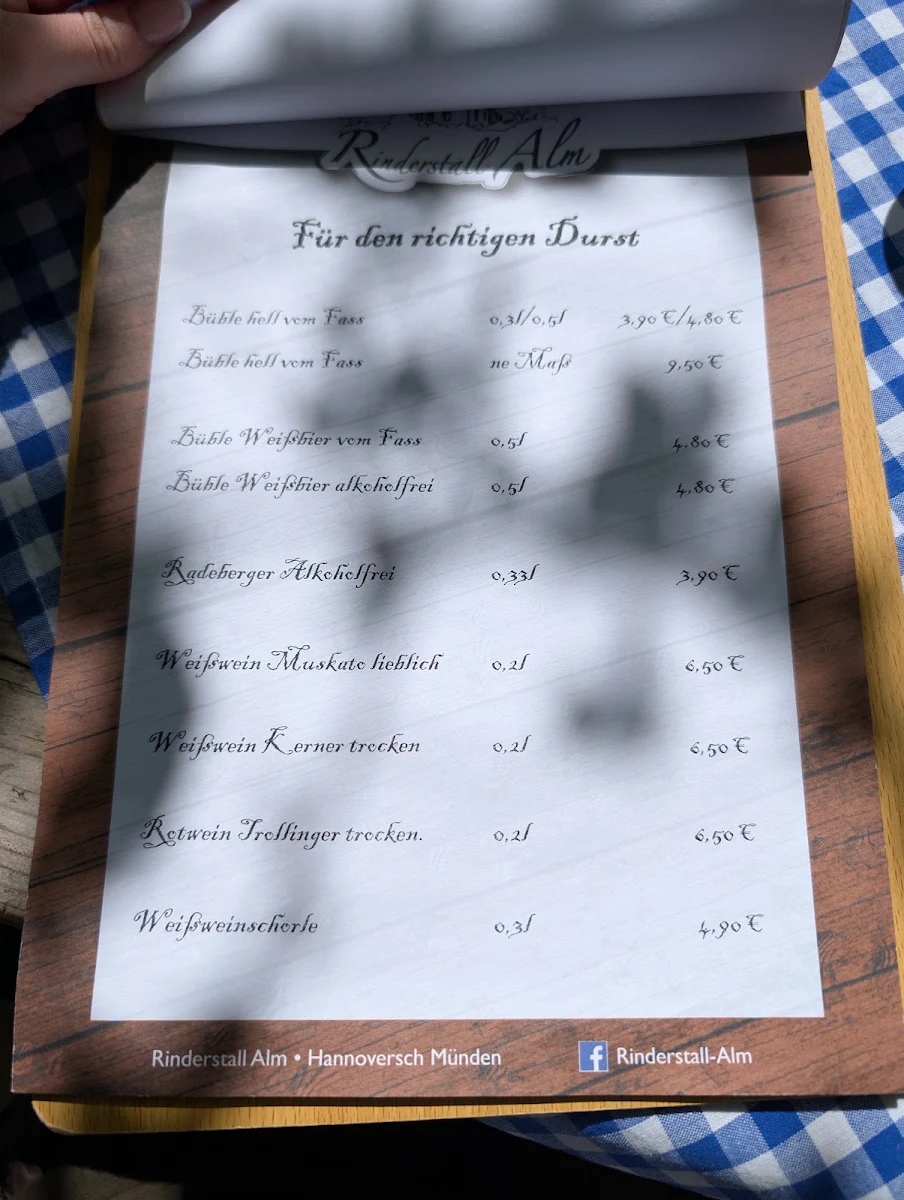 Rinderstall Alm
Für den richtigen Durst
Bühle hell vom Fass 0,3l/0,5l 3,90 €/4,80 €
Bühle hell vom Fass ne Maß 9,50 €
Bühle Weißbier vom Fass 0,5l 4,80 €
Bühle Weißbier alkoholfrei 0,5l 4,80 €
Radeberger Alkoholfrei 0,33l 3,90 €
Weißwein Muskato lieblich 0,2l 6,50 €
Weißwein Kerner trocken 0,2l 6,50 €
Rotwein Trollinger trocken. 0,2l 6,50 €
Weißweinschorle 0,3l 4,90 €
Rinderstall Alm • Hannoversch Münden f Rinderstall-Alm